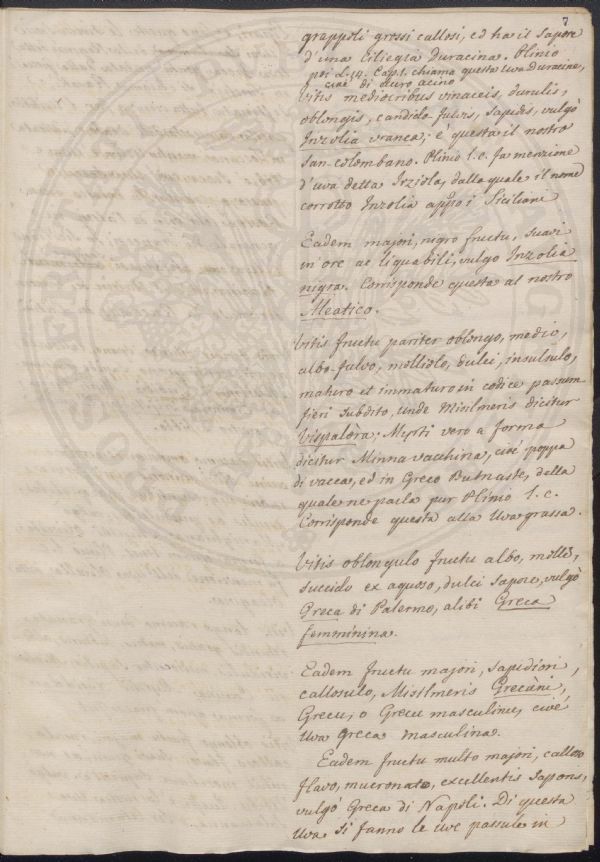 7
grappoli grossi callosi, ed ha il sapore
d'una Ciliegia Duracina. Plinio
poi L. 14. Cap. 1. chiama questa uva Duracine,
cioè di duro acino
Vitis mediocribus vinaceis, durulis,
oblongis, candido fulvis, sapidis, vulgò
Inzolia vranca; è questa il nostro
San-colombano. Plinio l. c. fa menzione
d'uva detta Irziola, dalla quale il nome
corrotto Inzolia appo i Siciliani
Eadem majori, nigro fructu, suavi
in ore ac liquabili, vulgo Inzolia
nigra. Corrisponde questa al nostro
Aleatico.
Vitis fructu pariter oblongo, medio,
albo-fulvo, molliolo, dulci, insulsulo,
maturo et immaturo in codice passum
fieri subdito, unde Misilmeris dicitur
Vispalòra; Myrti vero a forma
dicitur Minna vacchina, cioè poppa
di vacca, ed in Greco Bumaste, della
quale ne parla pur Plinio l. c.
Corrisponde questa alla Uva grassa.
Vitis oblongulo fructu albo, molli,
succido ex aquoso, dulci sapore, vulgò
Greca di Palermo, alibi Greca
femminina.
Eadem fructu majori, sapidiori,
callosulo, Misilmeris Grecàni,
Grecu, o Grecu masculinu, cioè
Uva greca masculina.
Eadem fructu multo majori, calloso
flavo, mucronato, excellentis saporis,
vulgò Greca di Napoli. Di questa
Uva si fanno le uve passule in